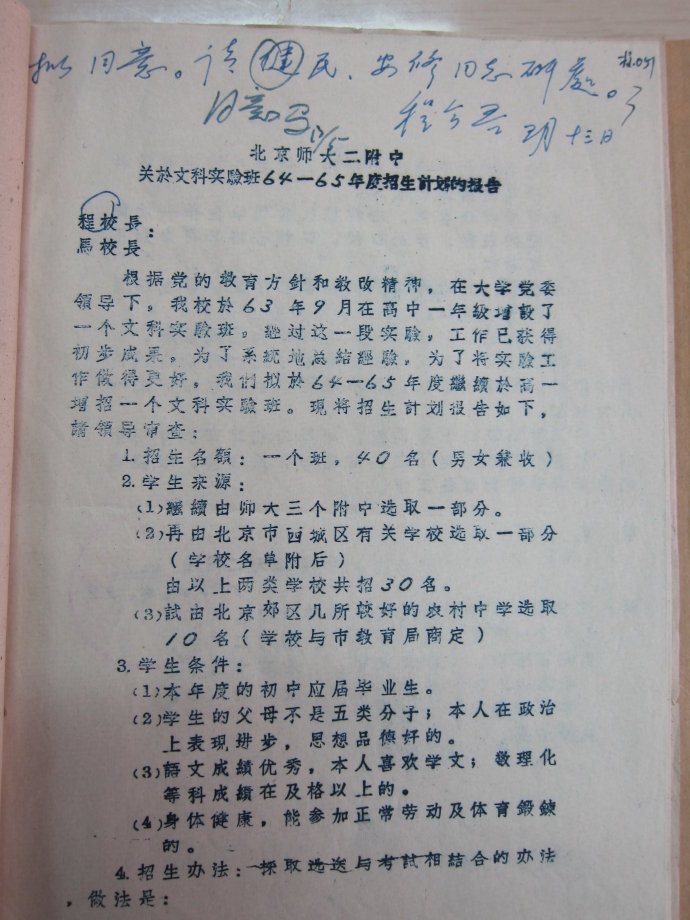 拟同意。请健民、安修同志研处。
同意 马 13/5 程今吾 五月十三日
北京师大二附中
关於文科实验班64—65年度招生计划的报告
程校長:
馬校長
根据党的教育方針和教改精神，在大学党委
領导下，我校於63年9月在高中一年級增設了
一个文科实验班。經过这一段实驗，工作已获得
初步成果。为了系統地总結經驗，为了将实驗工
作做得更好，我們拟於64—65年度繼續於高一
增招一个文科实验班。現将招生計划报告如下，
請領导审查：
1.招生名額：一个班，40名（男女兼收）
2.学生来源：
(1)繼續由师大三个附中选取一部分。
(2)再由北京市西城区有关学校选取一部分
（学校名单附后）
由以上两类学校共招30名。
(3)試由北京郊区几所較好的农村中学选取
10名（学校与市教育局商定）
3.学生条件：
(1)本年度的初中应届毕业生。
(2)学生的父母不是五类分子；本人在政治
上表现进步，思想品德好的。
(3)語文成績优秀，本人喜欢学文；数理化
等科成績在及格以上的。
(4)身体健康，能参加正常劳动及体育鍛鍊
的。
4.招生办法：採取选送与考試相結合的办法
，做法是：